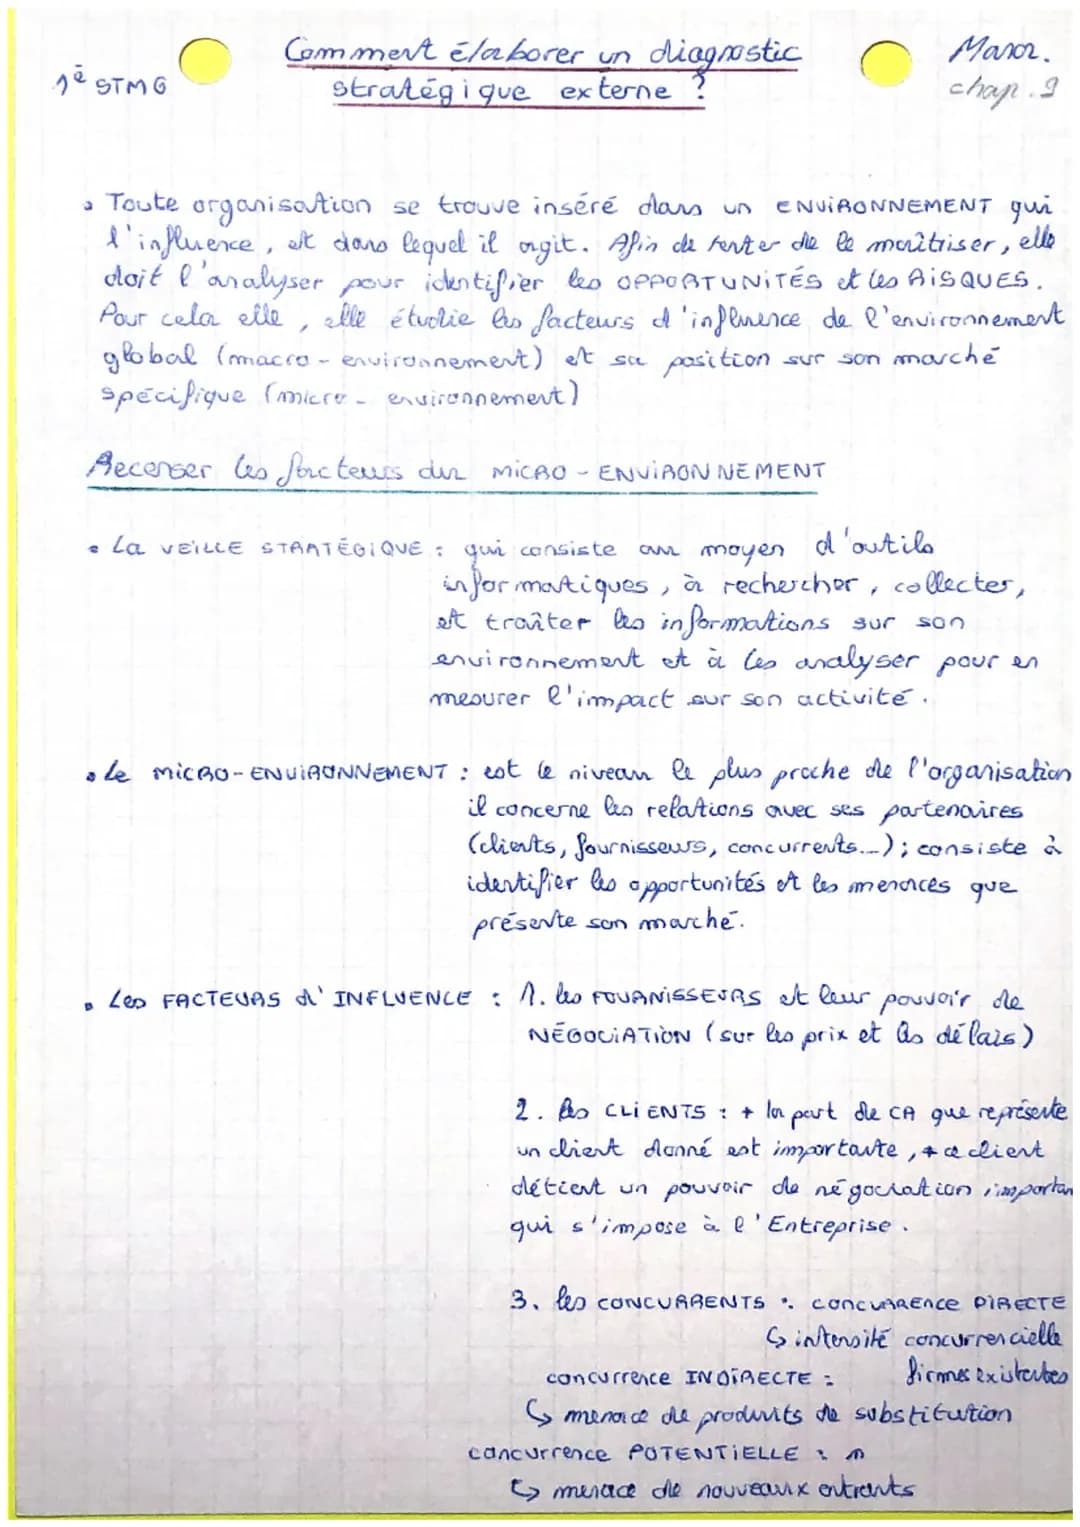 Comment élaborer un diagnostic
stratégique externe ?
1è STMG
chap. 9
Toute organisation se trouve inséré dans un ENVIRONNEMENT qui
l'influence, et dans lequel il agit. Afin de tenter de le maîtriser, elle
doit l'analyser pour identifier les OPPORTUNITÉS et les RISQUES.
Pour cela elle, elle étudie les facteurs d'influence de l'environnement
global (macro-environnement) et sa position sur son marché
spécifique (micro-environnement)
Recenser les facteurs du MICRO-ENVIRONNEMENT
• La VEILLE STRATÉGIQUE : qui consiste au moyen d'outils
informatiques, à rechercher, collecter,
et traiter les informations sur son
environnement et à les analyser pour en
mesurer l'impact sur son activité.
• Le MICRO-ENVIRONNEMENT : est le niveau le plus proche de l'organisation
il concerne les relations avec ses partenaires
(clients, fournisseurs, concurrents...) ; consiste à
identifier les opportunités et les menaces que
présente son marché.
• Les FACTEURS d'INFLUENCE : 1. les FOURNISSEURS et leur pouvoir de
NÉGOCIATION (sur les prix et les délais)
2. les CLIENTS : + la part de CA que représente
un client donné est importante, + ce client
détient un pouvoir de négociation importan
qui s'impose à l'Entreprise.
3. les CONCURRENTS : CONCURRENCE DIRECTE
↳ intensité concurrencielle
firmes existantes
concurrence INDIRECTE :
↳ menace de produits de substitution
concurrence POTENTIELLE :
↳ menace de nouveaux entrants